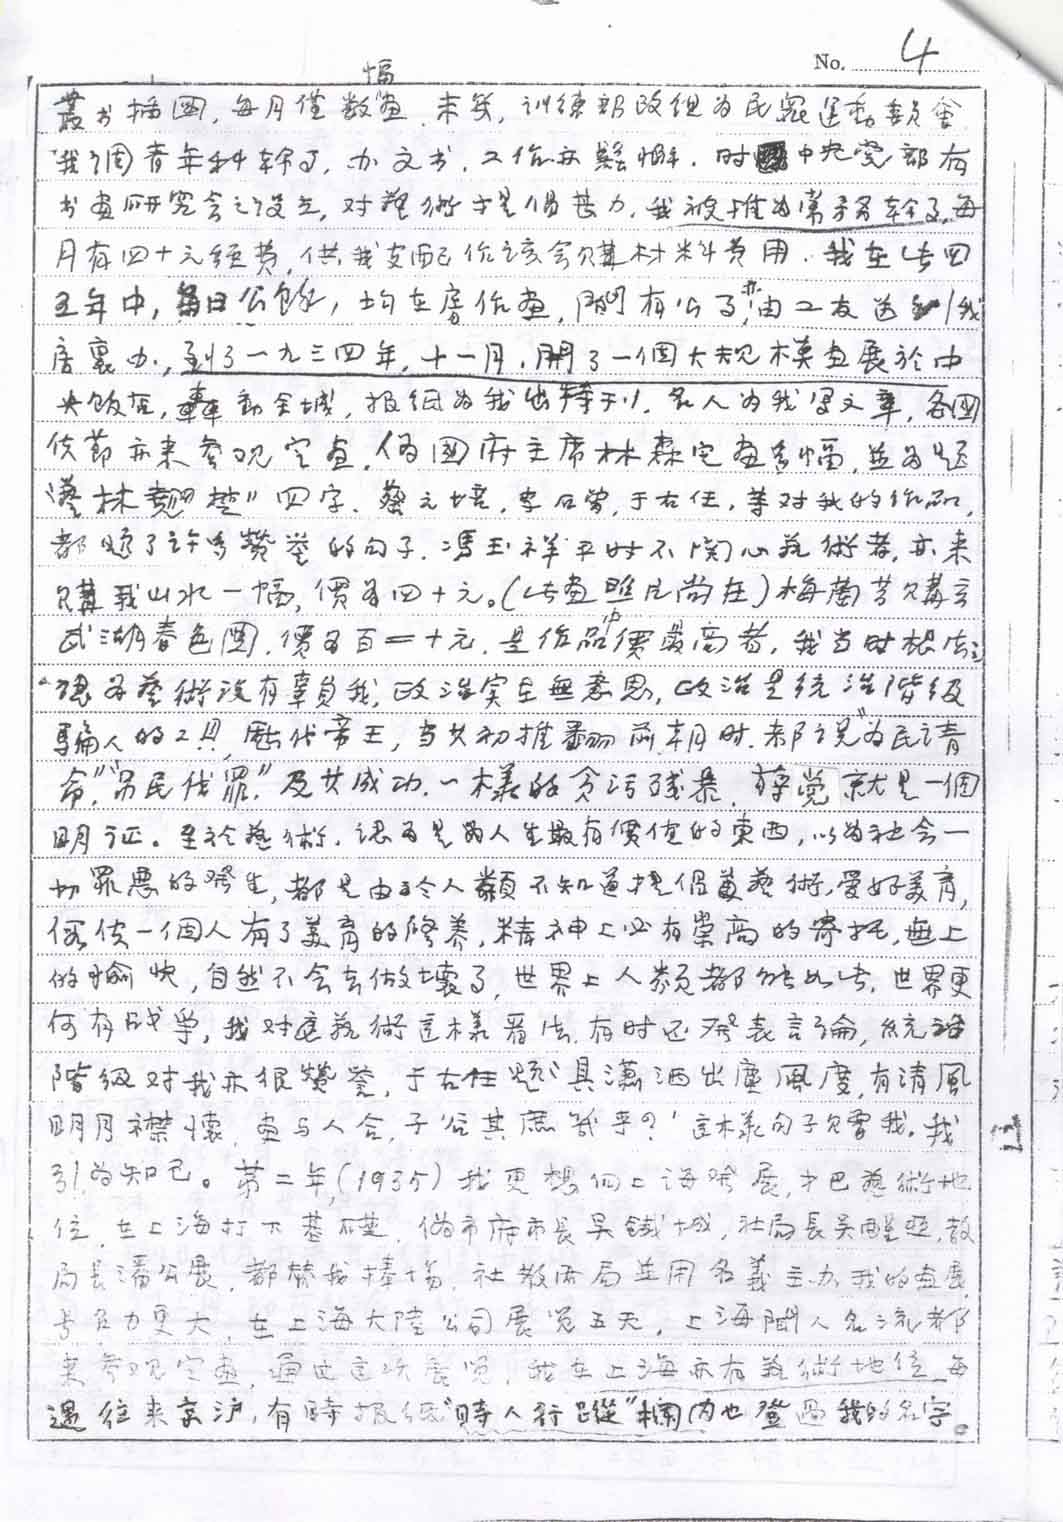 No. 4
幅
叢书插圖，每月僅数畫．未幾，训練部改组为民衆運動委員會
我调青年科幹了，办文书，工作亦鬆懈．时 中央党部有
书畫研究会之设立，对藝術提倡甚力，我被推为常務幹了，每
月有四十元经費，供我支配作该会购材料費用．我在此四
五年中，每日公餘，均在房作畫，間有公了，亦由工友送到我
房裏办，到了一九三四年，十一月，開了一個大规模畫展於中
央饭店，轟動全城，报纸为我出特刊，名人为我写文章，各國
使節亦来参观定畫，偽國府主席林森定畫多幅，並为题
"藝林翹楚"四字．蔡元培，李石曾，于右任，等对我的作品，
都题了许多赞誉的句子．馮玉祥平时不関心藝術者，亦来
购我山水一幅，價为四十元。(此畫照片尚在)梅蘭芳购玄
武湖春色圖．價为百二十元，是作品中價最高者，我当时想法：
"總为藝術没有辜負我，政治实在無意思，政治是统治階级
騙人的工具，歷代帝王，当其初推翻前朝时．都说"为民请
命，""吊民伐罪，"及其成功．一樣的贪污残暴． 党就是一個
明证。至於藝術，認为是为人生最有價值的東西，以为社会一
切罪惡的發生，都是由於人類不知道提倡藝術，愛好美育，
假使一個人有了美育的修养，精神上必有崇高的寄托，無上
的愉快，自然不会去做壞了，世界上人类都能如此，世界更
何有战争，我对這藝術這樣看法．有时还發表言論，統治
階级对我亦很赞誉，于右任题"具瀟洒出塵風度，有清風
明月襟懷，畫与人合，子谷其庶幾乎？"這樣句子见重我．我
引为知己。第二年(1935)我更想向上海發展，才把藝術地
位，在上海打下基礎，偽市府市長吴鐵城，社局長吴醒亞，教
局長潘公展，都替我捧場，社教两局並用名義主办我的畫展
号召力更大，在上海大陸公司展览五天，上海聞人名流都
来参观定畫，通过這次展览，我在上海亦有藝術地位，每
遇往来京沪，有時报纸"時人行蹤"欄内也登過我的名字。